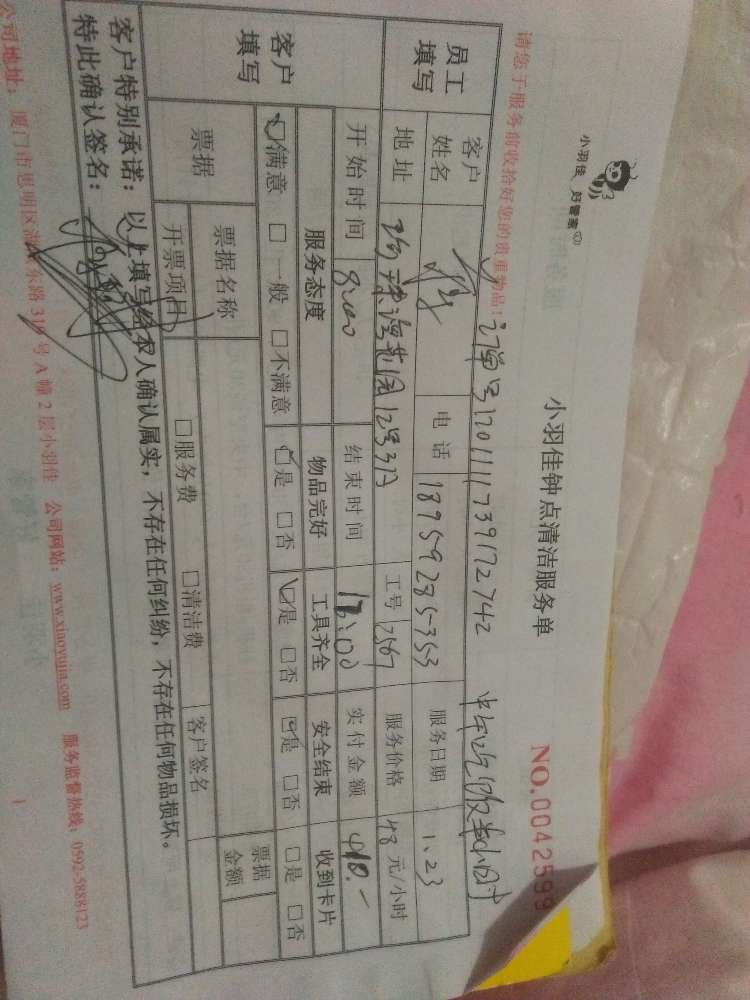 小羽佳 好管家
小羽佳钟点清洁服务单
NO.0042599
请您于服务前收拾好您的贵重物品!
订单号1201111739172742 中午吃饭半小时
员工填写
客户姓名 电话 18759285353 服务日期 1.23
地址 12号 工号 2567 服务价格 48 元/小时
开始时间 8:00 结束时间 17:00 实付金额 410.-
客户填写
服务态度 物品完好 工具齐全 安全结束 收到卡片
☑满意 □一般 □不满意 ☑是 □否 ☑是 □否 ☑是 □否 □是 □否
票据 票据名称 票据金额
开票项目 □服务费 □清洁费 客户签名
客户特别承诺:以上填写经本人确认属实,不存在任何纠纷,不存在任何物品损坏。
特此确认签名:
公司地址:厦门市思明区湖滨东路319号A幢2层小羽佳 公司网站:www.xiaoyujia.com 服务监督热线:0592-5888123
1